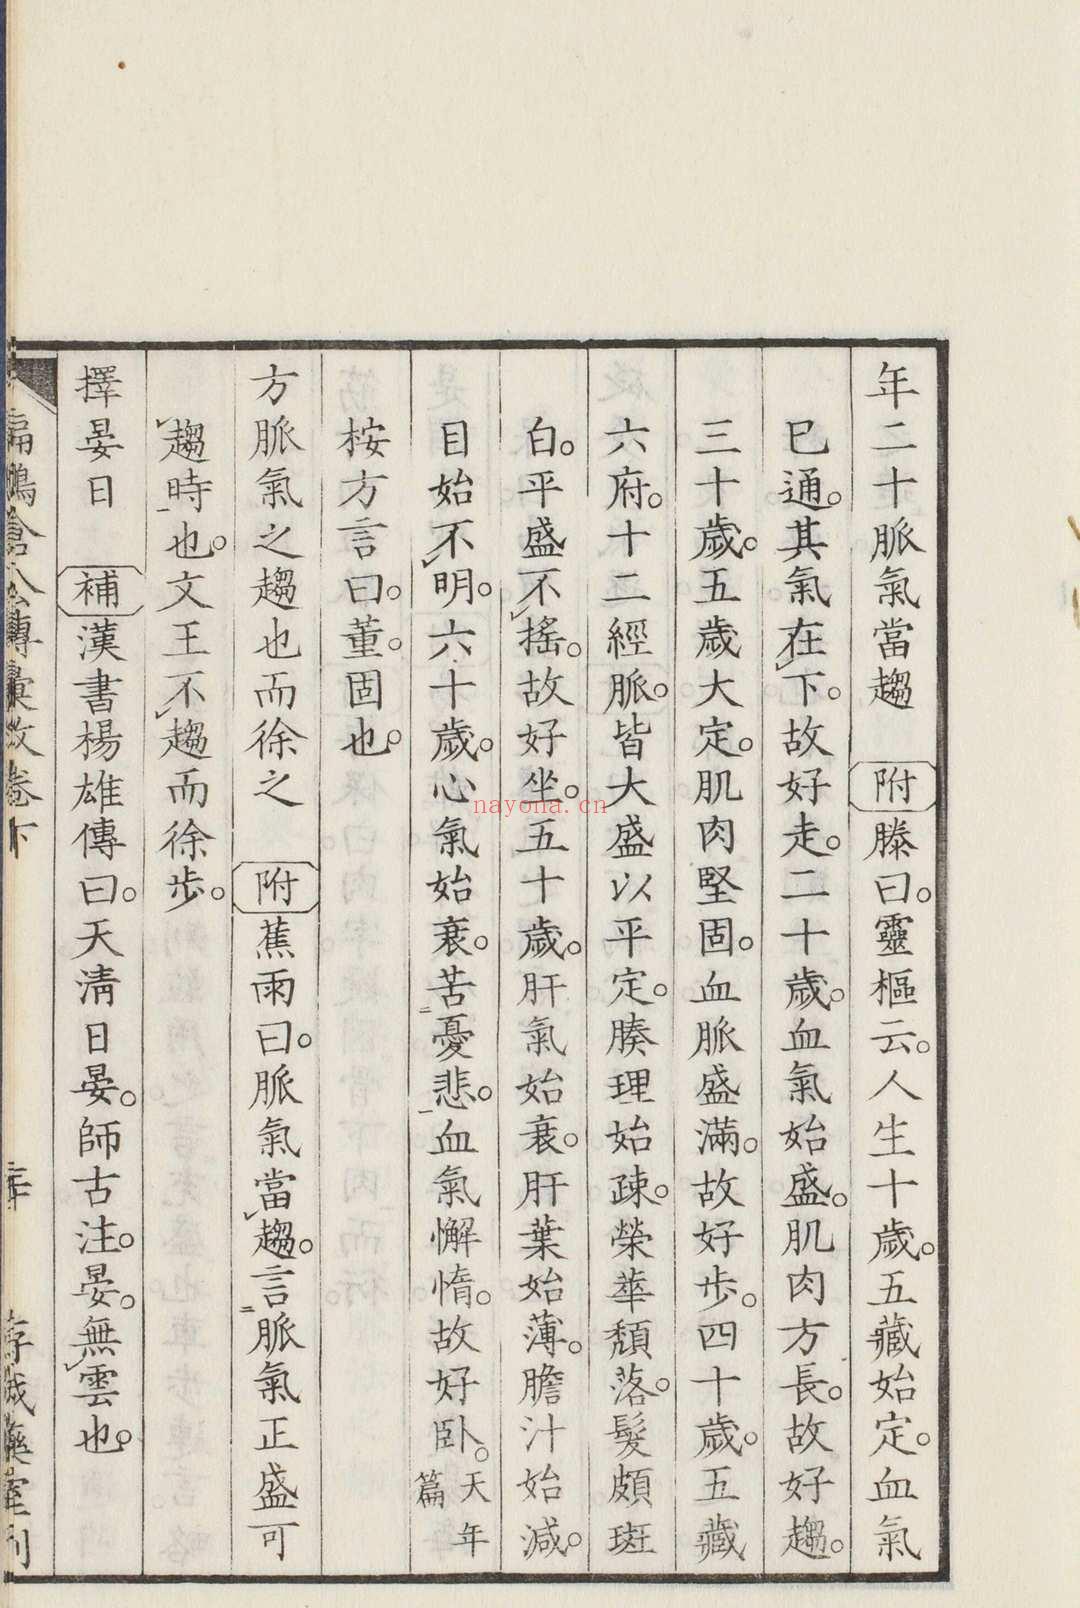 年二十脈氣當趨　附　滕曰。靈樞云。人生十歲。五藏始定。血氣
已通。其氣在下。故好走。二十歲。血氣始盛。肌肉方長。故好趨。
三十歲。五歲大定。肌肉堅固。血脈盛滿。故好步。四十歲。五藏
六府。十二經脈。皆大盛以平定。腠理始疎。榮華頹落。髮頗斑
白。平盛不搖。故好坐。五十歲。肝氣始衰。肝葉始薄。膽汁始減。
目始不明。六十歲。心氣始衰。苦憂悲。血氣懈惰。故好臥。天年篇
桉方言曰。董。固也。
方脈氣之趨也而徐之　附　蕉雨曰。脈氣當趨。言脈氣正盛可
趨時也。文王不趨而徐步。
擇晏日　補　漢書楊雄傳曰。天清日晏。師古注。晏。無雲也。
扁鵲倉公傳彙攷卷下　存誠藥室刊
nayona.cn